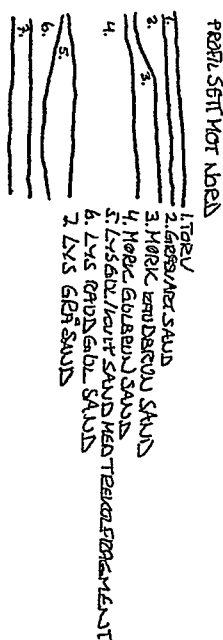 PROFIL SETT MOT NORD
1.
2.
3.
4.
5.
6.
7.
1. TORV
2. GRÅSVART SAND
3. MØRK RAUDBRUN SAND
4. MØRK GULBRUN SAND
5. LYSGUL/KVIT SAND MED TREKOLFRAGMENT
6. LYS RAUDGUL SAND
7 LYS GRÅ SAND